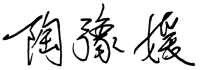 陶豫媛